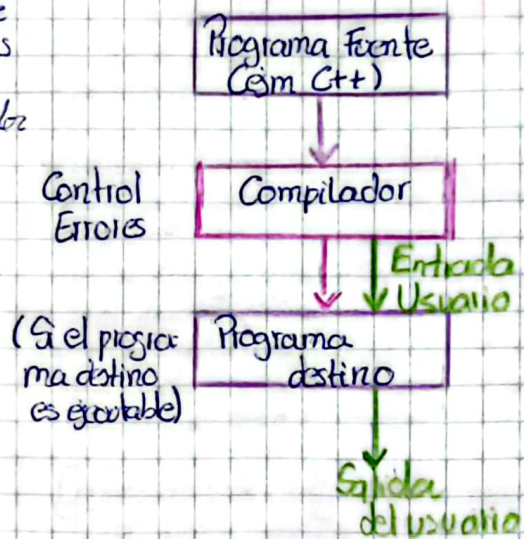 Programa Fuente
(Ejm C++)
Control
Errores
Compilador
Entrada
Usuario
(Si el progra
ma destino
es ejecutable)
Programa
destino
Salida
del usuario